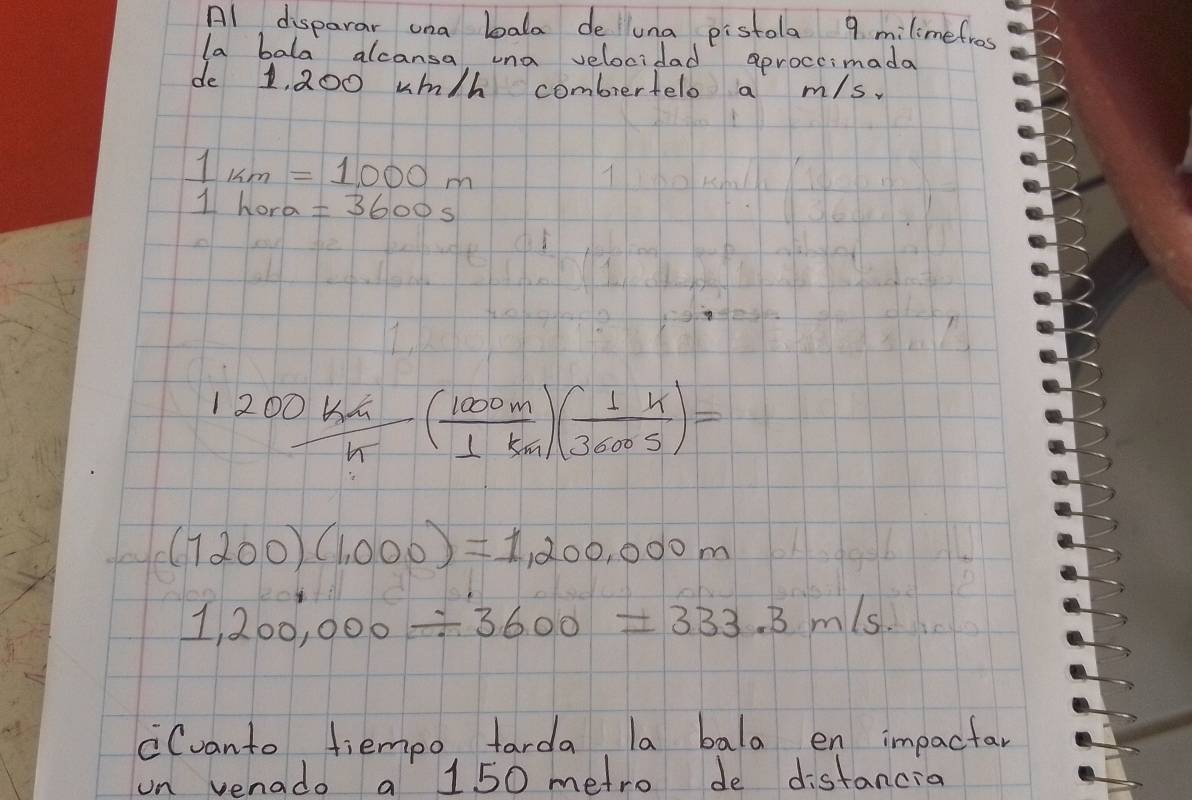 Al disparar una bala de una pistola 9 milimetros
la bala alcansa una velocidad aproccimada
de 1.200 km/h combiertelo a m/s.
1 km = 1,000 m
1 hora = 3600 s
1200 km/h (1000 m / 1 km) (1 h / 3600 s) =
(1200) (1,000) = 1,200,000 m
1,200,000 ÷ 3600 = 333.3 m/s.
¿Cuanto tiempo tarda la bala en impactar
un venado a 150 metro de distancia